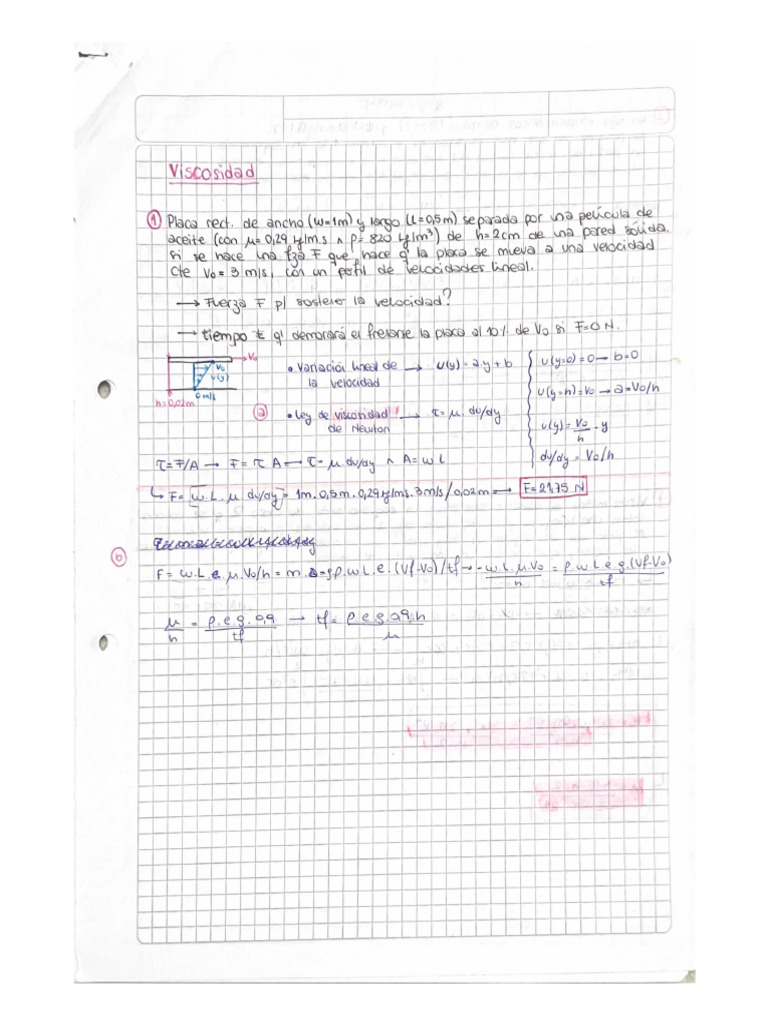 Viscosidad
① Placa rect. de ancho (w=1m) y largo (L=0,5m) separada por una película de
aceite (con μ=0,29 kg/m.s ∧ ρ=820 kg/m³) de h=2cm de una pared sólida.
Si se hace una fza F que hace q' la placa se mueva a una velocidad
cte V₀=3 m/s, con un perfil de velocidades lineal.
→ Fuerza F p/ sostener la velocidad?
→ tiempo t q' demorará el frenarse la placa al 10% de V₀ si F=0 N.
V₀
V₀
u(y)
0 m/s
h=0,02m
• Variación lineal de → u(y)=a.y+b
la velocidad
ⓐ • Ley de viscosidad → τ=μ.dv/dy
de Newton
u(y=0)=0 → b=0
u(y=h)=V₀ → a=V₀/h
u(y)=V₀/h . y
dv/dy=V₀/h
τ=F/A → F=τ A → τ=μ.dv/dy ∧ A=w L
↳ F=w.L.μ.dv/dy=1m.0,5m.0,29kg/ms.3m/s/0,02m → F=21,75 N
ⓑ
F=w.L.μ.V₀/h=m.=ρ.w.L.e.(Vf-V₀)/tf → -w.L.μ.V₀/h = ρ.w.L.e.g.(Vf-V₀)/tf
μ/h = ρ.e.g.0,9/tf → tf=ρ.e.g.0,9.h/μ